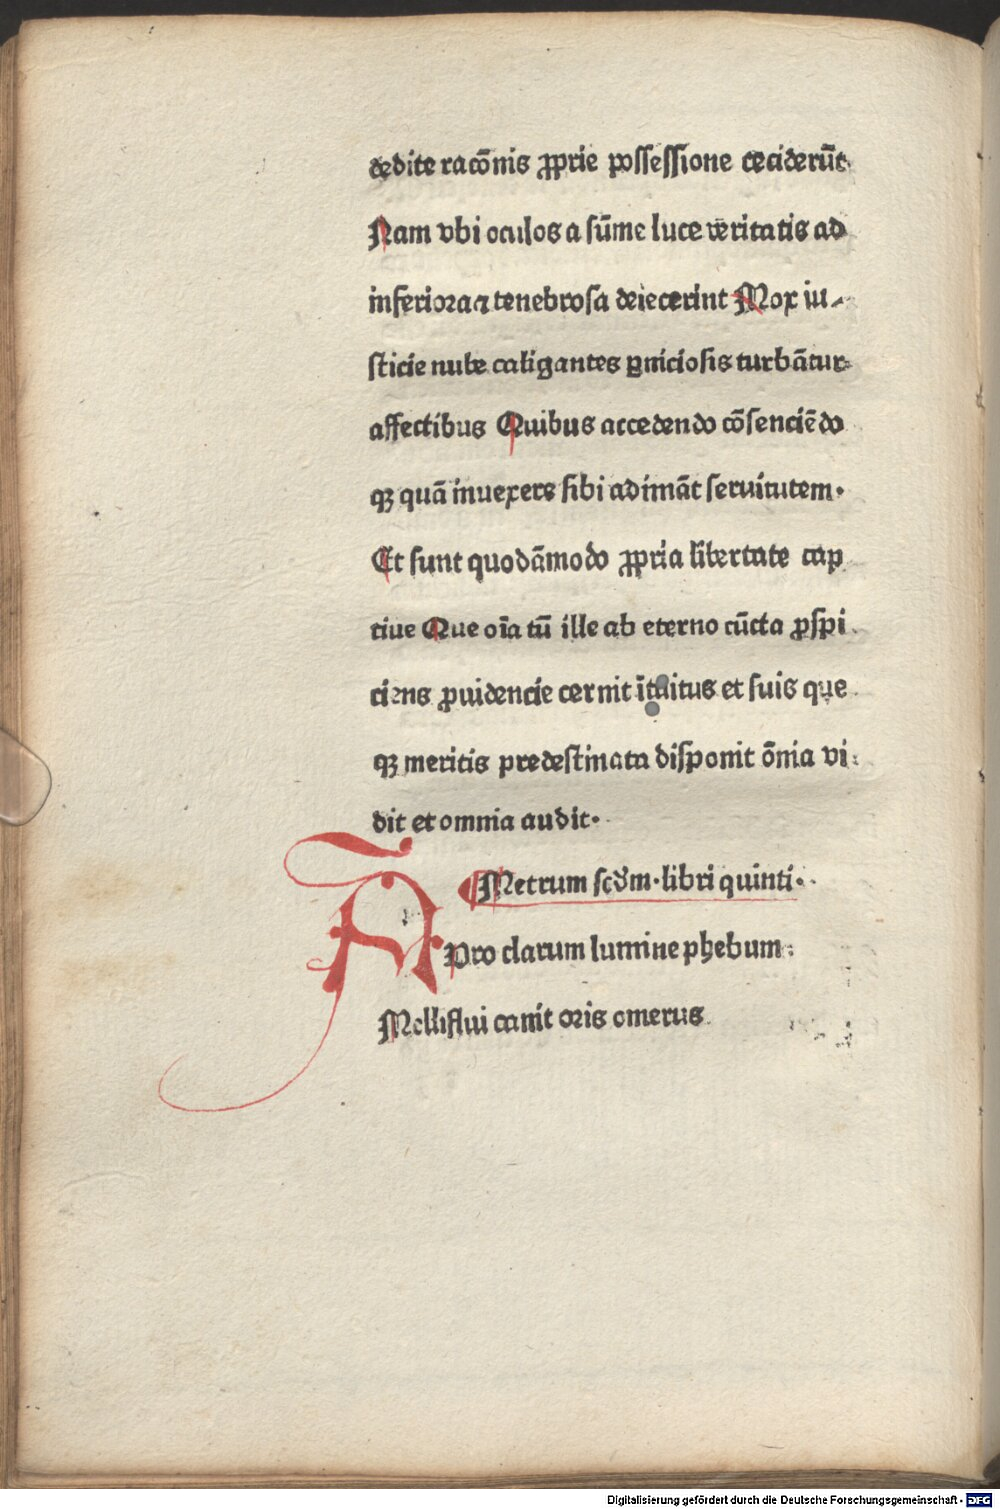 dedite racōnis ꝓprie possessione ceciderūt.
Nam vbi oculos a sūme luce veritatis ad
inferiora ⁊ tenebrosa deiecerint Mox iu-
sticie nube caligantes ꝑniciosis turbātur
affectibus Quibus accedendo cōsenciēdo
qꝫ quā inuexere sibi adimāt seruitutem.
Et sunt quodāmodo ꝓpria libertate cap
tiue Que oīa tū ille ab eterno cūcta ꝓspi
ciens ꝓuidencie cernit ītuitus et suis que
qꝫ meritis predestinata disponit ōnia vi
dit et omnia audit.
Metrum scd̄m. libri quinti.
Pro clarum lumine phebum
Melliflui canit oris omerus
Digitalisierung gefördert durch die Deutsche Forschungsgemeinschaft - DFG